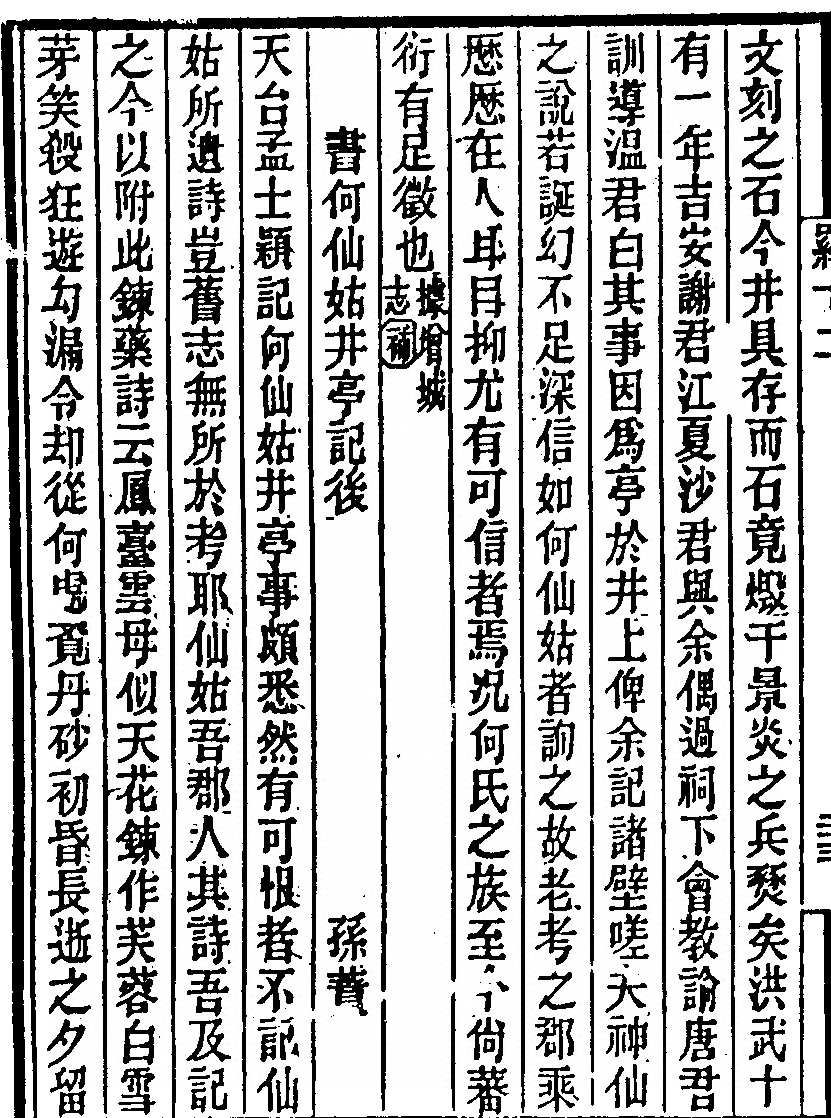 文刻之石今井具存而石竟燬于景炎之兵燹矣洪武十
有一年吉安謝君江夏沙君與余偶過祠下會教諭唐君
訓導溫君白其事因爲亭於井上俾余記諸壁嗟夫神仙
之說若誕幻不足深信如何仙姑者詢之故老考之郡乘
歷歷在人耳目抑尤有可信者焉況何氏之族至今尙蕃
衍有足徵也據增城志補
書何仙姑井亭記後 孫蕡
天台孟士頴記何仙姑井亭事頗悉然有可恨者不記仙
姑所遺詩豈舊志無所於考耶仙姑吾郡人其詩吾及記
之今以附此鍊藥詩云鳳臺雲母似天花鍊作芙蓉白雪
芽笑殺狂遊勾漏令却從何處覓丹砂初昏長逝之夕留